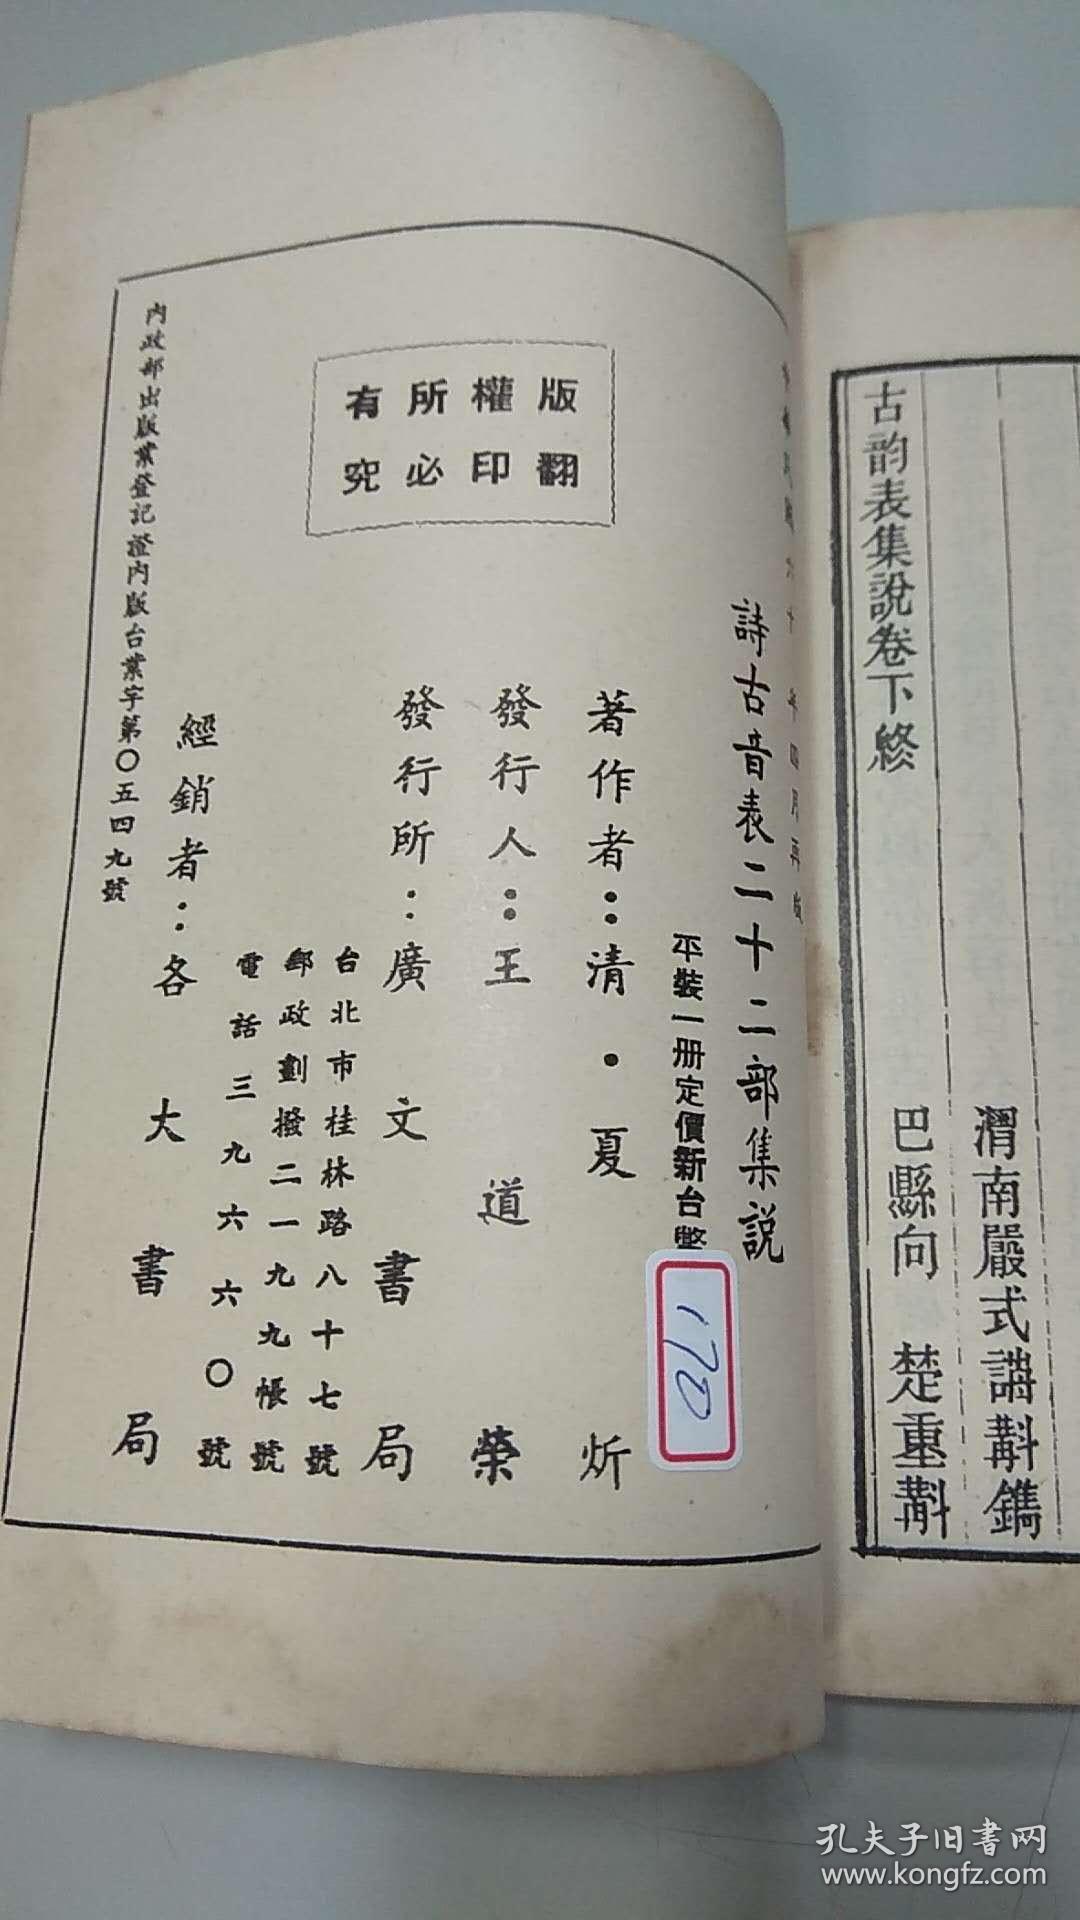 渭南嚴式誨斠鐫
巴縣向 楚重斠
古韵表集說卷下終
年四月再版
詩古音表二十二部集説
平裝一册定價新台幣
170
著作者：清・夏炘
發行人：王道榮
發行所：廣文書局
台北市桂林路八十七號
郵政劃撥二一九九九帳號
電話三九六六〇號
經銷者：各大書局
內政部出版業登記證內版台業字第〇五四九號
版權所有
翻印必究
孔夫子旧书网
www.kongfz.com